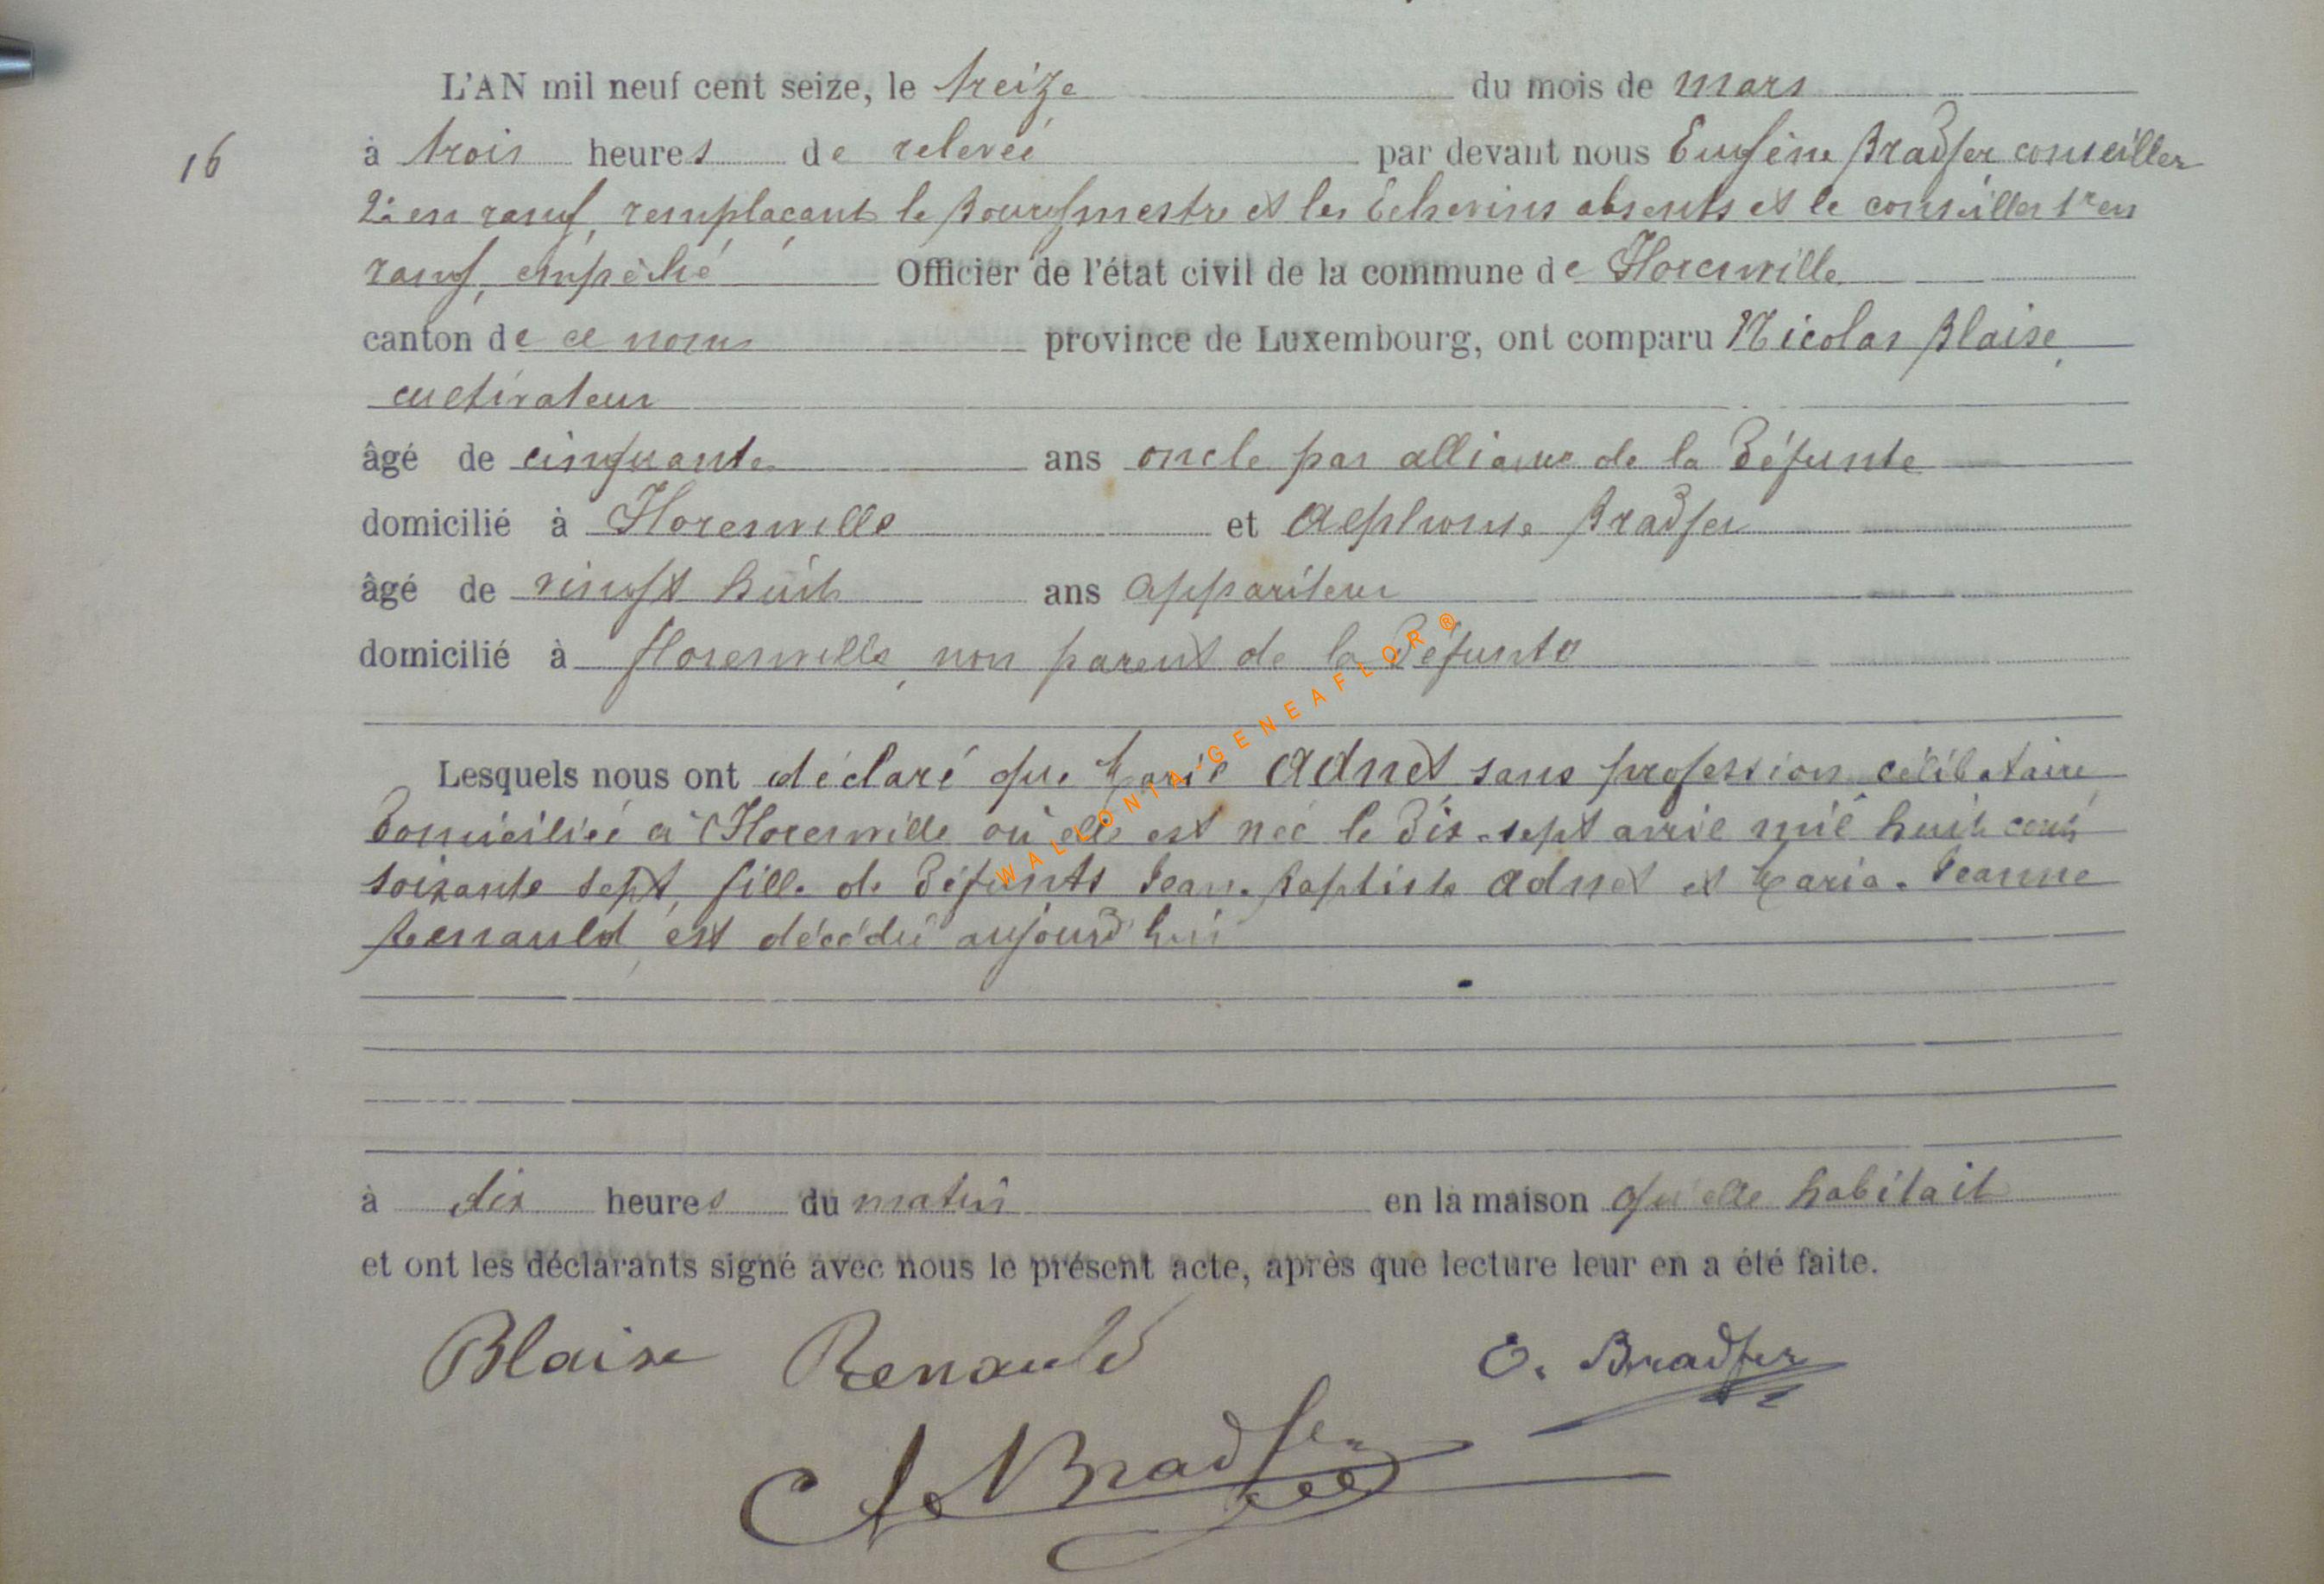 L'AN mil neuf cent seize, le treize du mois de mars
16
à trois heures de relevée par devant nous Eugène Bradfer conseiller
2e en rang, remplaçant le Bourgmestre et les Echevins absents et le conseiller 1er en
rang, empêché Officier de l'état civil de la commune de Florenville
canton de ce nom province de Luxembourg, ont comparu Nicolas Blaise,
cultivateur
âgé de cinquante ans oncle par alliance de la défunte
domicilié à Florenville et Alphonse Bradfer
âgé de vingt huit ans appariteur
domicilié à Florenville, non parent de la défunte
Lesquels nous ont déclaré que Marie Adnet, sans profession, célibataire,
domiciliée à Florenville où elle est née le dix-sept avril mil huit cent
soixante sept, fille de défunts Jean-Baptiste Adnet et Maria-Jeanne
Renauld, est décédée aujourd'hui
à dix heures du matin en la maison qu'elle habitait
et ont les déclarants signé avec nous le présent acte, après que lecture leur en a été faite.
Blaise Renauld E. Bradfer
A Bradfer
WALLONIA-GENEAFLOR®